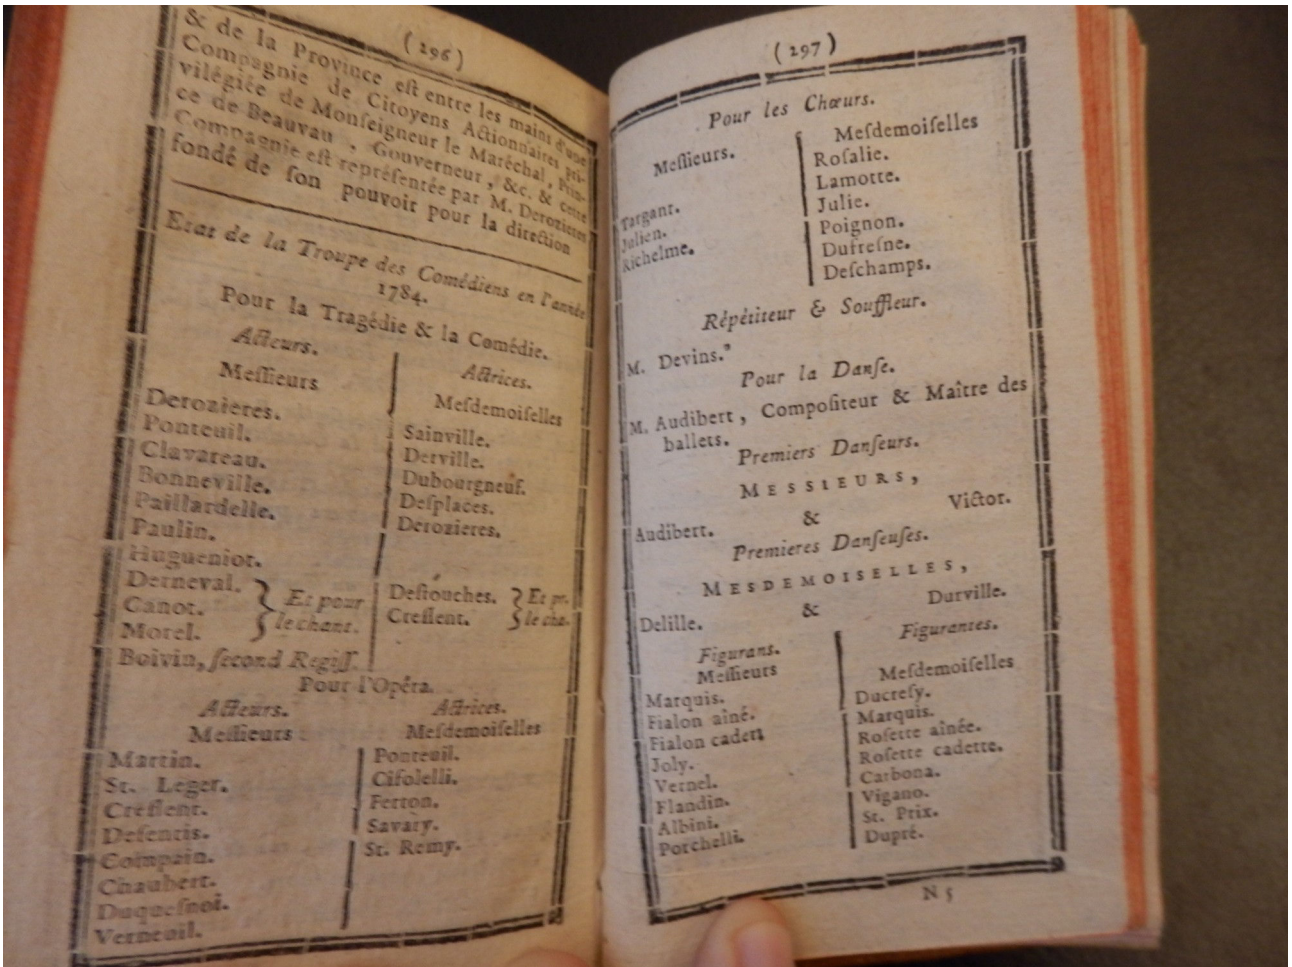 ( 296 )
& de la Province eſt entre les mains d'une
Compagnie de Citoyens Actionnaires, pri-
vilégiée de Monſeigneur le Maréchal, Prin-
ce de Beauvau, Gouverneur, &c. & cette
Compagnie eſt repréſentée par M. Derozieres
fondé de ſon pouvoir pour la direction
Etat de la Troupe des Comédiens en l'année
1784.
Pour la Tragédie & la Comédie.
Acteurs.
Meſſieurs
Derozieres.
Ponteuil.
Clavareau.
Bonneville.
Paillardelle.
Paulin.
Hugueniot.
Derneval.
Canot.
Morel.
Et pour
le chant.
Boivin, ſecond Regiſſ.
Actrices.
Meſdemoiſelles
Sainville.
Derville.
Dubourgneuf.
Deſplaces.
Derozieres.
Deſtouches.
Creſſent.
Et pr.
le cha.
Pour l'Opéra.
Acteurs.
Meſſieurs
Martin.
St. Leger.
Creſſent.
Deſentis.
Compain.
Chaubert.
Duqueſnoi.
Verneuil.
Actrices.
Meſdemoiſelles
Ponteuil.
Cifolelli.
Ferton.
Savary.
St. Remy.
( 297 )
Pour les Chœurs.
Meſſieurs.
Targant.
Julien.
Richelme.
Meſdemoiſelles
Roſalie.
Lamotte.
Julie.
Poignon.
Dufreſne.
Deſchamps.
Répétiteur & Souffleur.
M. Devins.
Pour la Danſe.
M. Audibert, Compoſiteur & Maître des
ballets.
Premiers Danſeurs.
MESSIEURS,
Audibert. & Victor.
Premieres Danſeuſes.
MESDEMOISELLES,
Delille. & Durville.
Figurans.
Meſſieurs
Marquis.
Fialon aîné.
Fialon cadet
Joly.
Vernel.
Flandin.
Albini.
Porchelli.
Figurantes.
Meſdemoiſelles
Ducreſy.
Marquis.
Roſette aînée.
Roſette cadette.
Carbona.
Vigano.
St. Prix.
Dupré.
N 5